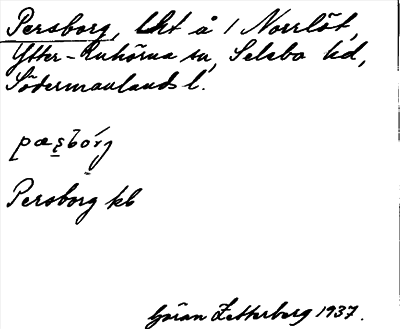 Persborg, lht å 1 Norrlöt,
Ytter-Enhörna sn, Selebo hd,
Södermanlands l.
pæʂbórg
Persborg kb
Göran Zetterberg 1937.